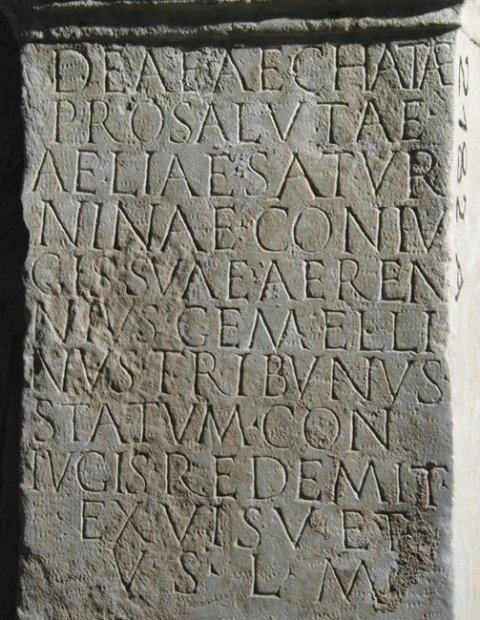 DEAE AECHATAE
PRO SALVTAE
AELIAE SATVR
NINAE · CONIV
GIS SVAE AEREN
NIVS GEMELLI
NVS TRIBVNVS
STATVM · CON
IVGIS REDEMIT ·
EX VISV · ET
V · S · L · M
2182 A